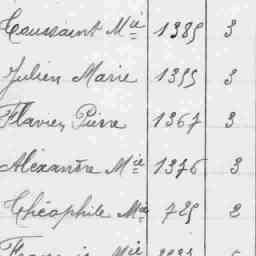 Toussaint Mie 1385 3
Julien Marie 1355 3
Flavien Pierre 1367 3
Alexandre Mie 1376 3
Théophile Mie 725 2